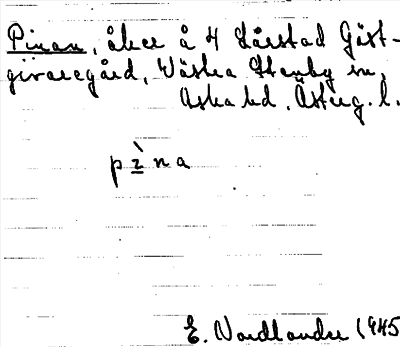 Pinan, åker å 4 Kårstad Gäst-
givaregård, Västra Stenby sn,
Aska hd. Österg. l.
pìna
E. Nordlander 1945